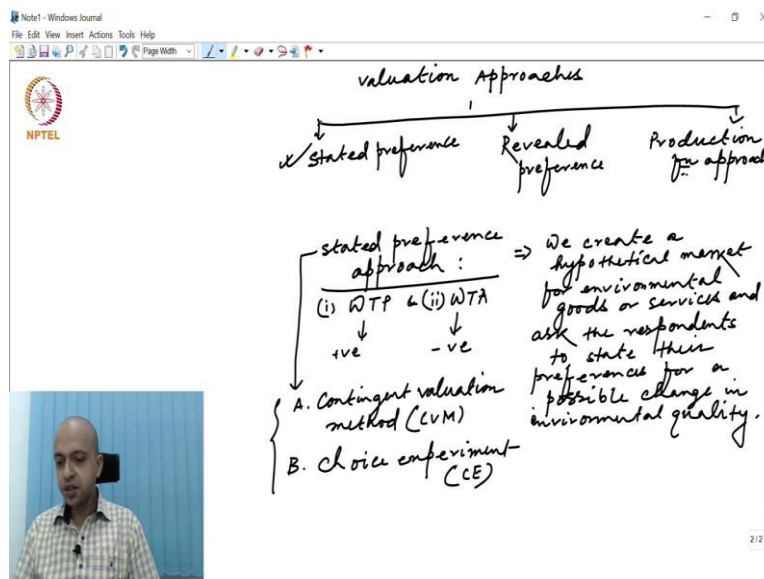 Note1 - Windows Journal
File Edit View Insert Actions Tools Help
Page Width
NPTEL
Valuation Approaches
Stated preference
Revealed preference
Production fn approach
stated preference approach :
(i) WTP & (ii) WTA
+ve - ve
A. Contingent valuation
method (CVM)
B. Choice experiment
(CE)
⇒ We create a
hypothetical market
for environmental
goods or services and
ask the respondents
to state their
preferences for a
possible change in
environmental quality.
2/2